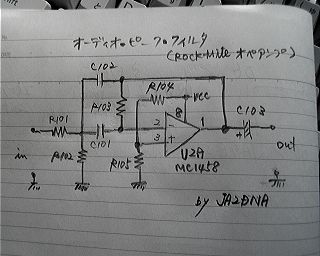 オーディオ・ピークフィルタ
(Rock-Mite オペアンプ)
C102
R104
Vcc
R101
R103
C103
8
C101
2
-
1
3
+
+
in
R102
R105
U2A
MC1458
out
by JA2DNA